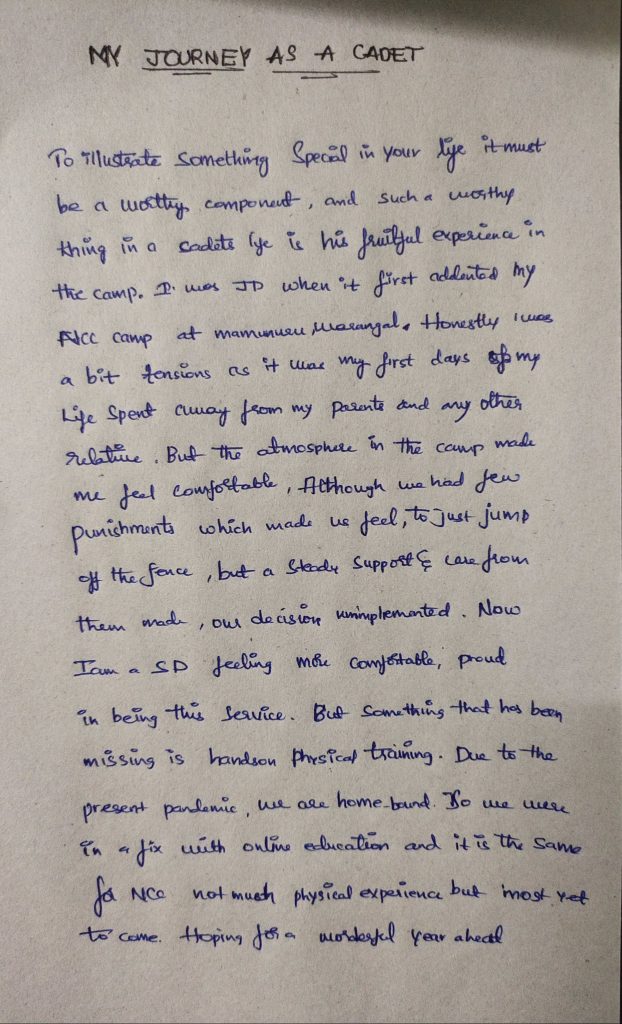 MY JOURNEY AS A CADET
To illustrate Something Special in your life it must
be a worthy component, and such a worthy
thing in a cadets life is his fruitful experience in
the camp. I was JD when it first addented my
NCC camp at mamunuru, warangal. Honestly I was
a bit tensions as it was my first days of my
Life Spent away from my parents and any other
relative. But the atmosphere in the camp made
me feel comfortable, Although we had few
punishments which made us feel, to just jump
off the fence, but a Steady Support & care from
them made, our decision unimplemented. Now
I am a SD feeling more comfortable, proud
in being this service. But something that has been
missing is handson physical training. Due to the
present pandemic, we are home-bund. So we were
in a fix with online education and it is the same
for NCC not much physical experience but most yet
to come. Hoping for a wonderful year ahead